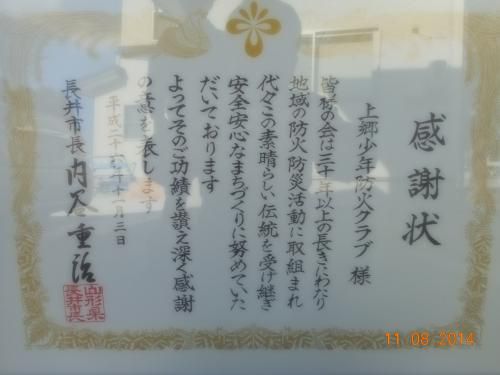 感謝状
上郷少年防火クラブ 様
皆様の会は三十年以上の長きにわたり
地域の防火防災活動に取組まれ
代々この素晴らしい伝統を受け継ぎ
安全安心なまちづくりに努めていた
だいております
よってそのご功績を讃え深く感謝
の意を表します
平成二十六年十一月三日
長井市長 内谷重治
山形県
長井市長
11 08 2014